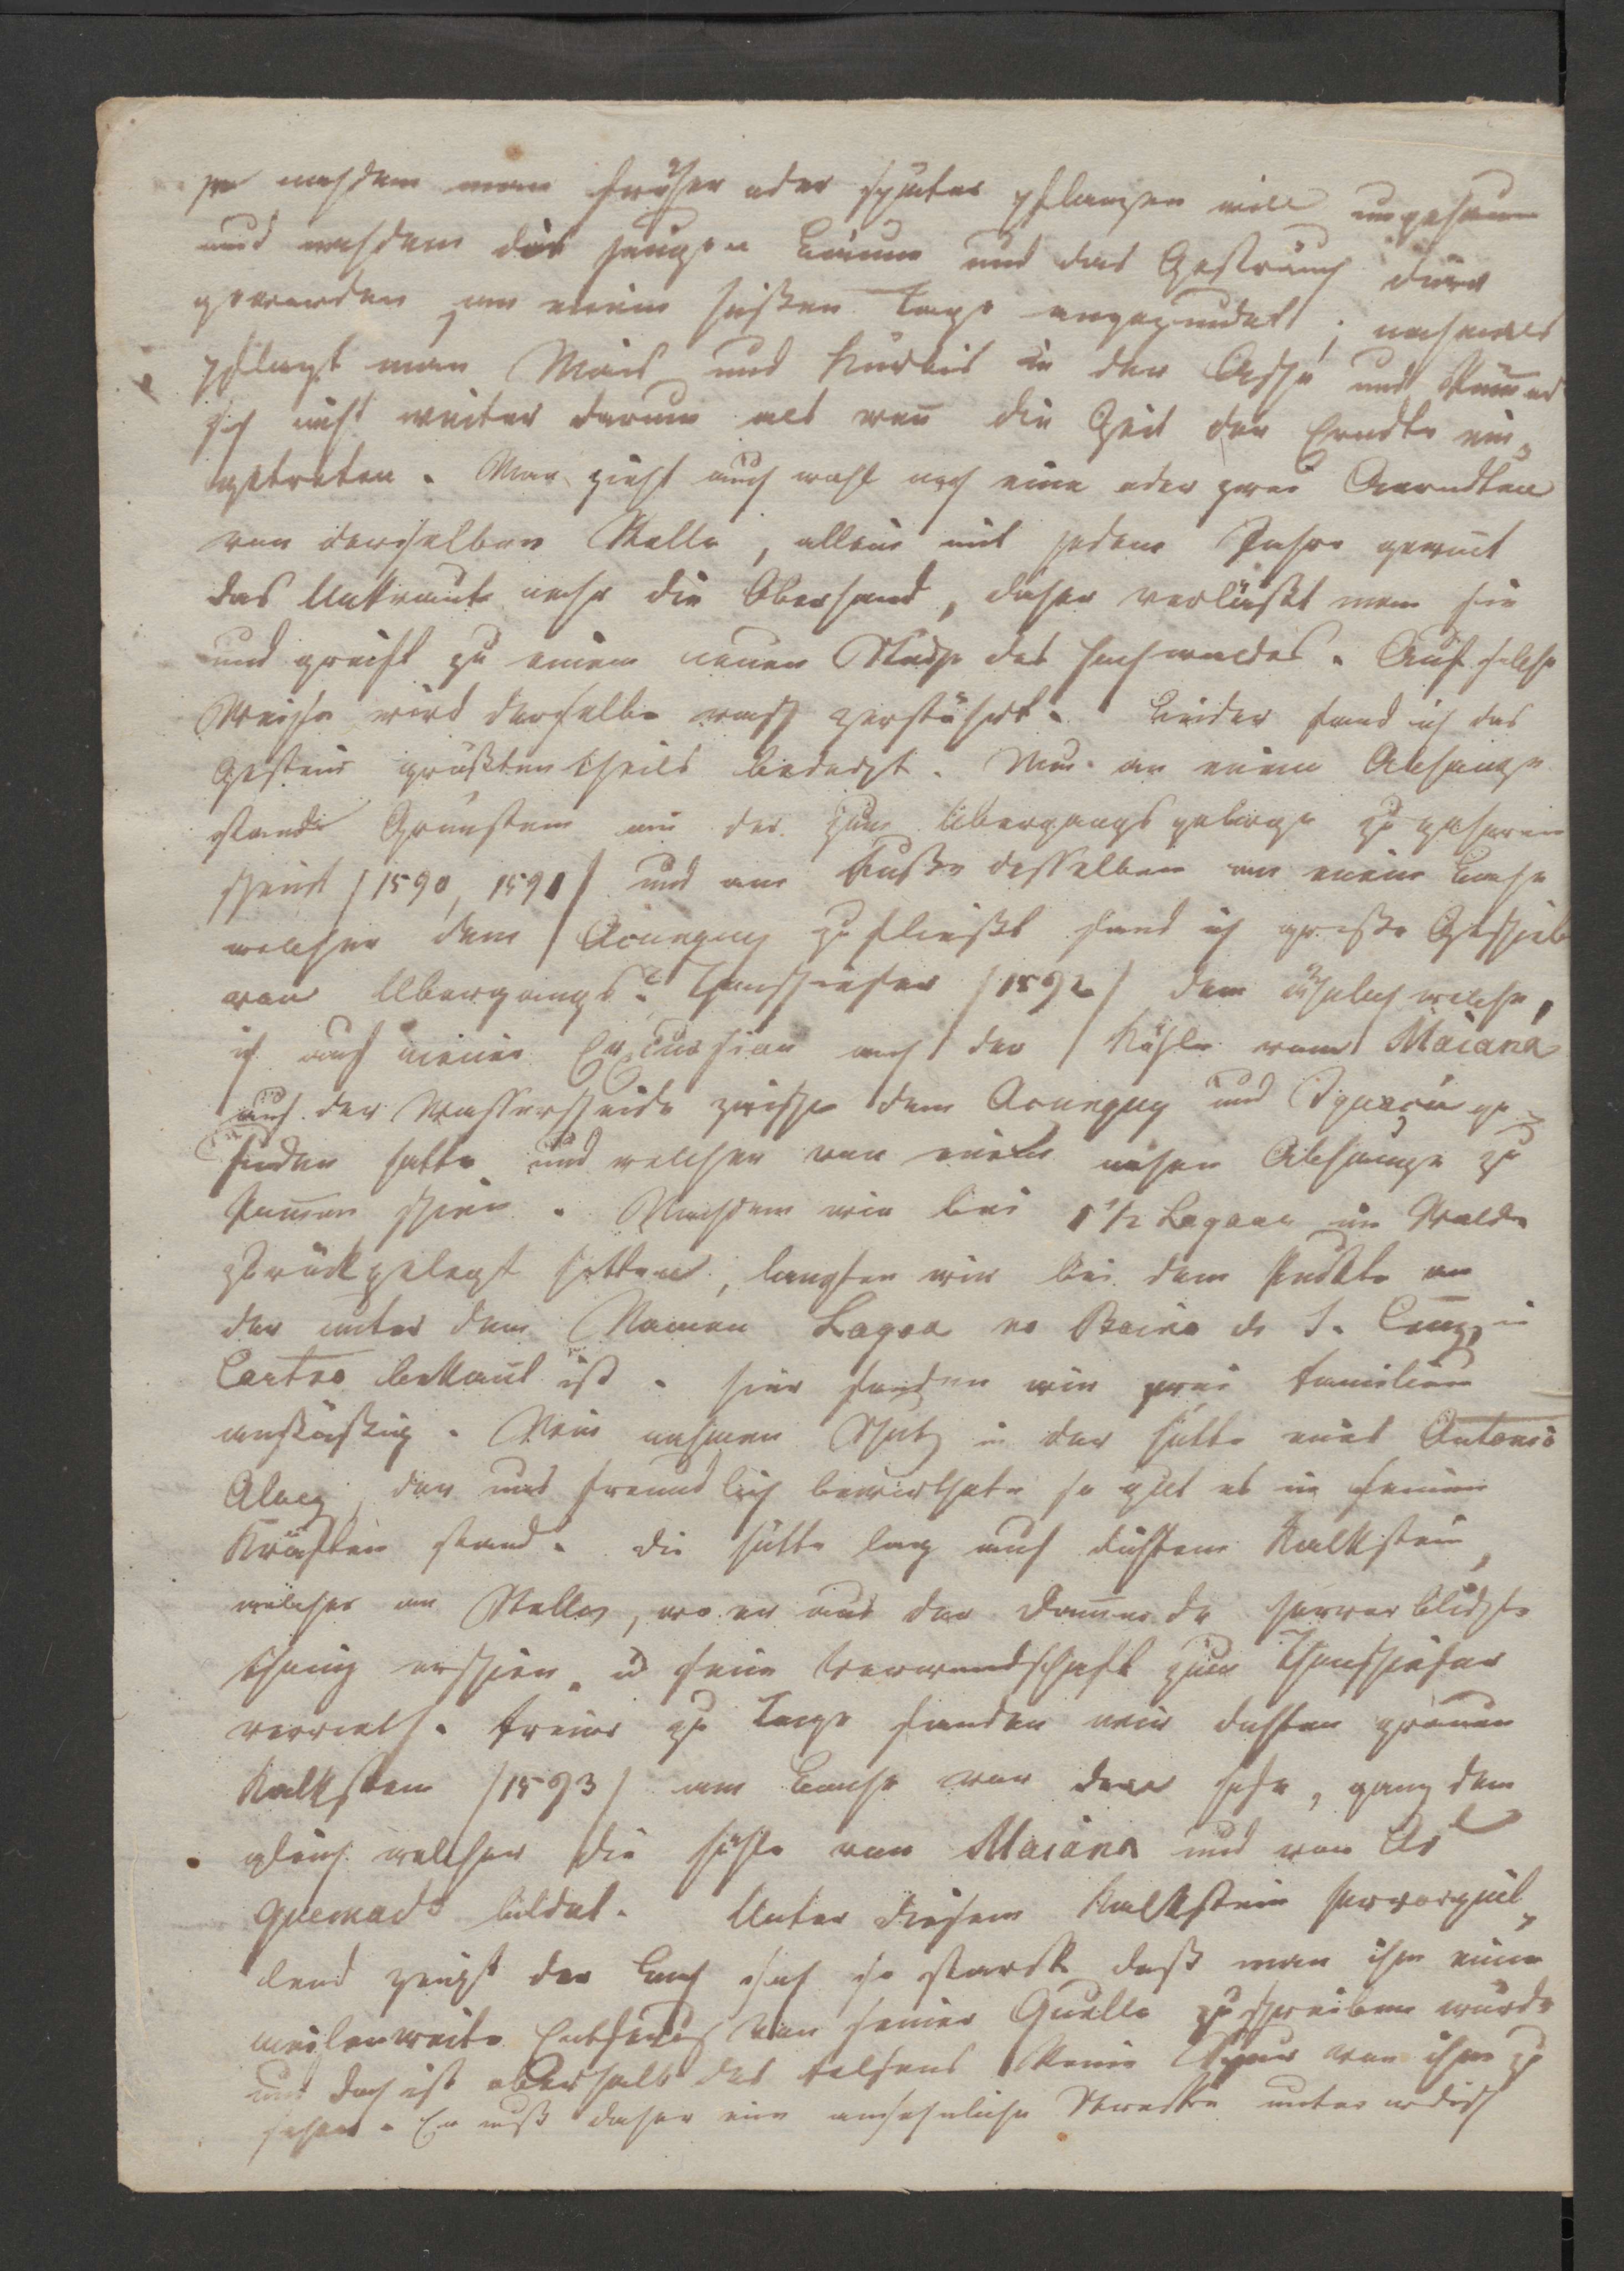 je nachdem man früher oder später pflanzen will umgehauen
und nachdem die jungen Bäume und das Gesträuch dürr
geworden an einem heißen Tage angezündet; nachmals
pflegt man Mais und Kürbis in der Asche und kümert
sich nicht weiter darum als wen̄ die Zeit der Erndte ein„
getreten. Man zieht auch wohl noch eine oder zwei Aerndten
von derselben Stelle, allein mit jedem Jahre gewint
das Unkraut mehr die Oberhand, daher verläßt man sie
und greift zu einem neuen Stück des Hochwaldes. Auf solche
Weise wird derselbe rasch zerstöhrt. Leider fand ich das
Gestein größtentheils bedeckt. Nur an einem Abhange
stand Grünstein an der zum Übergangsgebirge zu gehören
scheint /1590, 1591/ und am Fuße desselben an einem Bache
welcher dem Aouneguy zufließt fand ich große Geschiebe
von Übergangs-Thonschiefer /1592/ dem ähnlich welche,
ich auf meiner Excursion nach der Höhle vom Maiana
auf der Wasserscheide zwische dem Aouneguy und Iguaçu ge„
funden hatte und welcher von einem nahen Abhange zu
kom̄en schien. Nachdem wir bei 1 1/2 Legoas im Walde
zurückgelegt hatten, langten wir bei dem Punkte an
der unter dem Namen Lagoa no Bairo de S.
Castro bekant ist. Hier fanden wir zwei Familien
ansäßig. Wir nahmen Schutz in der Hütte eines Antonio
der uns freundlich bewirthete so gut es in seinen
Kräften stand. Die Hütte lag auf dichtem Kalkstein,
welcher an Stellen, wo er aus der Dam̄erde hervorblickte
thonig erschien u seine Verwandschaft zum Thonschiefer
verrieth. Freier zu Tage fanden wir dichten grauen
Kalkstein /1593/ am Bache von der Höhe, ganz dem
gleich welcher die Höhle von Maiana und von
Quemado bildet. Unter diesem Kalkstein hervorquil„
lend zeigt der Bach sich so stark daß man ihm eine
meilenweite Entfernung von seiner Quelle zuschreiben würde
und doch ist oberhalb des Felsens keine Spur von ihm zu
sehen. Er muß daher eine ansehnliche Strecke unterirdisch